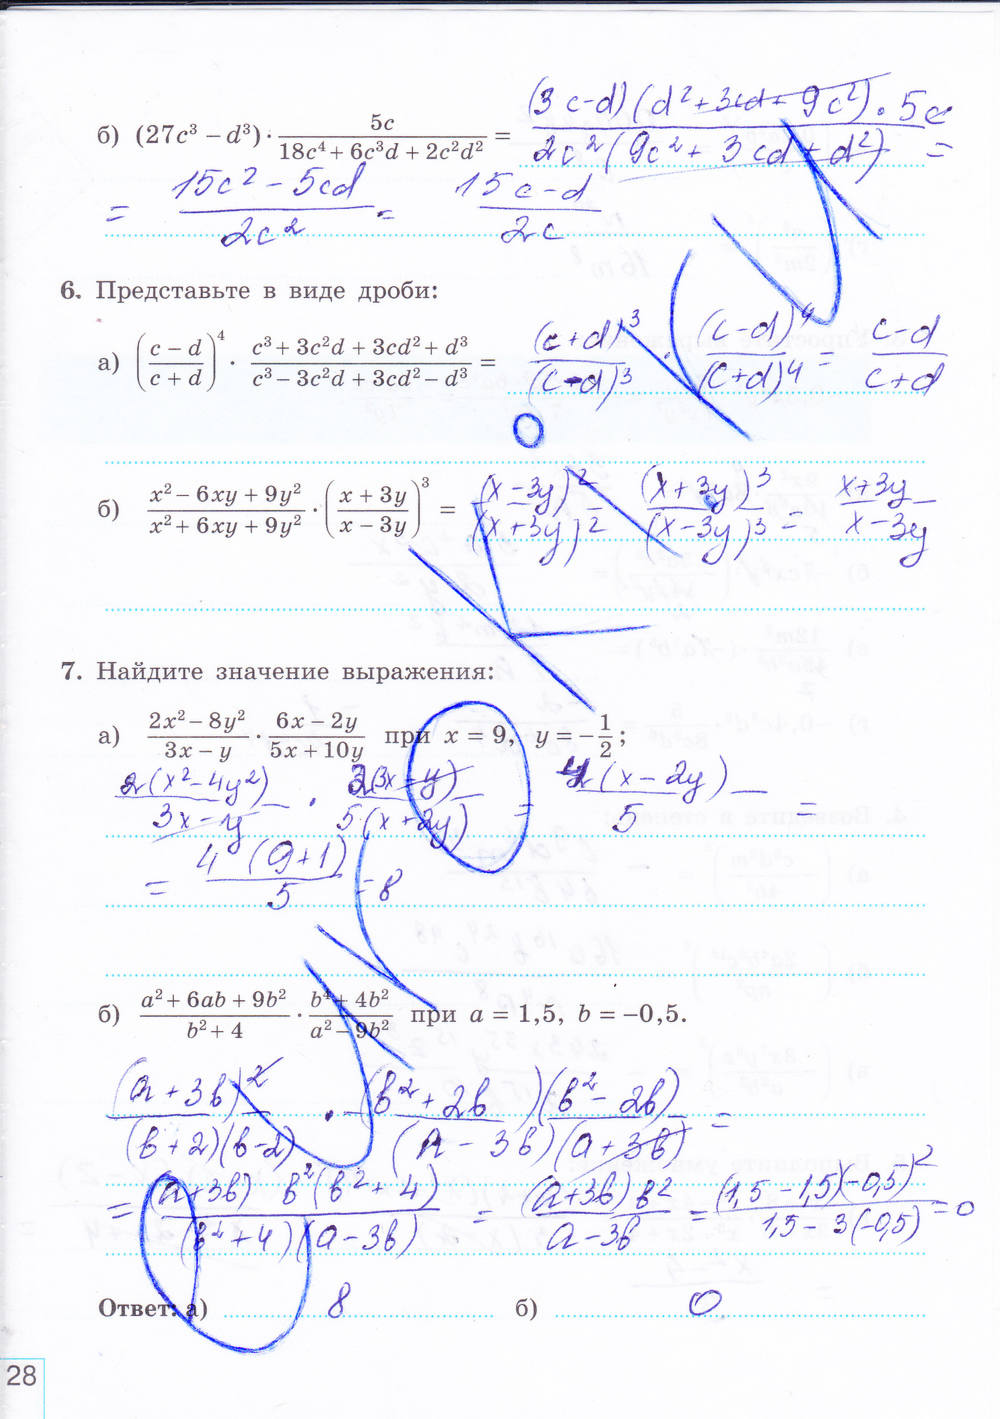 б) (27c³ − d³) · 5c / (18c⁴ + 6c³d + 2c²d²) = (3c-d)(d²+3cd+9c²)·5c / 2c²(9c²+3cd+d²) =
= (15c² − 5cd) / 2c² = (15c − d) / 2c
6. Представьте в виде дроби:
а) ((c − d)/(c + d))⁴ · (c³ + 3c²d + 3cd² + d³)/(c³ − 3c²d + 3cd² − d³) = (c+d)³/(c-d)³ · (c-d)⁴/(c+d)⁴ = (c-d)/(c+d)
б) (x² − 6xy + 9y²)/(x² + 6xy + 9y²) · ((x + 3y)/(x − 3y))³ = (x-3y)²/(x+3y)² (x+3y)³/(x-3y)³ = (x+3y)/(x-3y)
7. Найдите значение выражения:
а) (2x² − 8y²)/(3x − y) · (6x − 2y)/(5x + 10y) при x = 9, y = −1/2;
2(x²-4y²)/(3x-y) · 2(3x-y)/5(x+2y) = 4(x-2y)/5 =
= 4(9+1)/5 = 8
б) (a² + 6ab + 9b²)/(b² + 4) · (b⁴ + 4b²)/(a² − 9b²) при a = 1,5, b = −0,5.
(a+3b)²/(b+2)(b-2) · (b²+2b)(b²-2b)/(a-3b)(a+3b) =
= (a+3b) b²(b²+4)/(b²+4)(a-3b) = (a+3b)b²/(a-3b) = (1,5-1,5)(-0,5)²/(1,5-3(-0,5)) = 0
Ответ: а) 8 б) 0
28